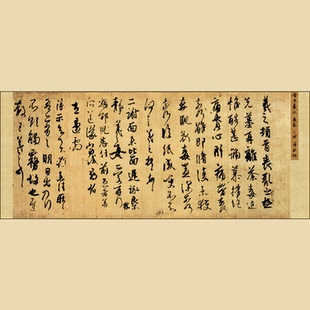 羲之頓首喪亂之極
先墓再離荼毒追
惟酷甚號慕摧絕
痛貫心肝痛當奈何
奈何雖即脩復未獲
奔馳哀毒益深奈何
奈何臨紙感哽不知
何言羲之頓首頓首
二謝面未比面遲詠良不
靜羲之女愛再拜
想邵兒悉佳前患者善
所送議當試尋省
左邊劇
得示知足下猶未佳耿耿
吾亦劣劣明日出乃行
不欲觸霧故也遲
散王羲之頓首